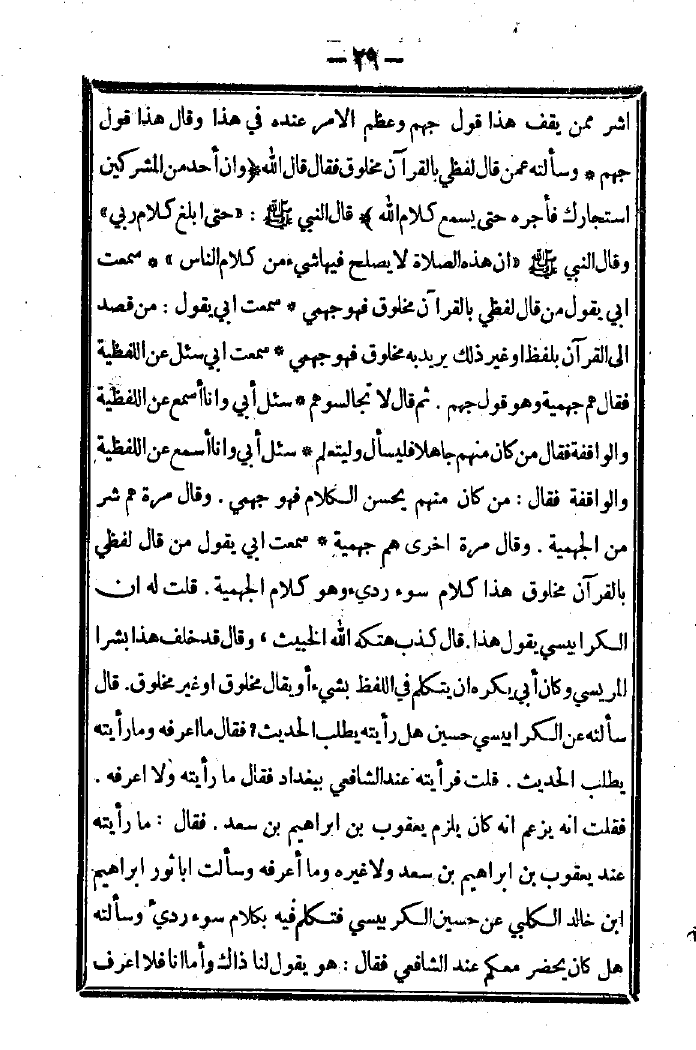 — ٢٩ —
اشر ممن يقف هذا قول جهم وعظم الامر عنده في هذا وقال هذا قول
جهم * وسألته عمن قال لفظي بالقرآن مخلوق فقال قال الله ﴿وان أحد من المشركين
استجارك فأجره حتى يسمع كلام الله ﴾ قال النبي ﷺ : «حتى ابلغ كلام ربي»
وقال النبي ﷺ «ان هذه الصلاة لا يصلح فيها شيء من كلام الناس » * سمعت
ابي يقول من قال لفظي بالقرآن مخلوق فهو جهمي * سمعت ابي يقول : من قصد
الى القرآن بلفظ او غير ذلك يريد به مخلوق فهو جهمي * سمعت ابي سئل عن اللفظية
فقال هم جهمية وهو قول جهم . ثم قال لا تجالسوهم * سئل أبي وانا أسمع عن اللفظية
والواقفة فقال من كان منهم جاهلا فليسأل وليتعلم * سئل أبي وانا أسمع عن اللفظية
والواقفة فقال : من كان منهم يحسن الكلام فهو جهمي . وقال مرة هم شر
من الجهمية . وقال مرة اخرى هم جهمية * سمعت ابي يقول من قال لفظي
بالقرآن مخلوق هذا كلام سوء رديء وهو كلام الجهمية . قلت له ان
الكرابيسي يقول هذا. قال كذب هتكه الله الخبيث ، وقال قد خلف هذا بشرا
المريسي وكان أبي يكره ان يتكلم في اللفظ بشيء أو يقال مخلوق او غير مخلوق. قال
سألته عن الكرابيسي حسين هل رأيته يطلب الحديث؟ فقال ما اعرفه وما رأيته
يطلب الحديث . قلت فرأيته عند الشافعي ببغداد فقال ما رأيته ولا اعرفه .
فقلت انه يزعم انه كان يلزم يعقوب بن ابراهيم بن سعد . فقال : ما رأيته
عند يعقوب بن ابراهيم بن سعد ولا غيره وما أعرفه وسألت ابا ثور ابراهيم
ابن خالد الكلبي عن حسين الكربيسي فتكلم فيه بكلام سوء ردي ٴ وسألته
هل كان يحضر معكم عند الشافعي فقال : هو يقول لنا ذاك وأما انا فلا اعرف